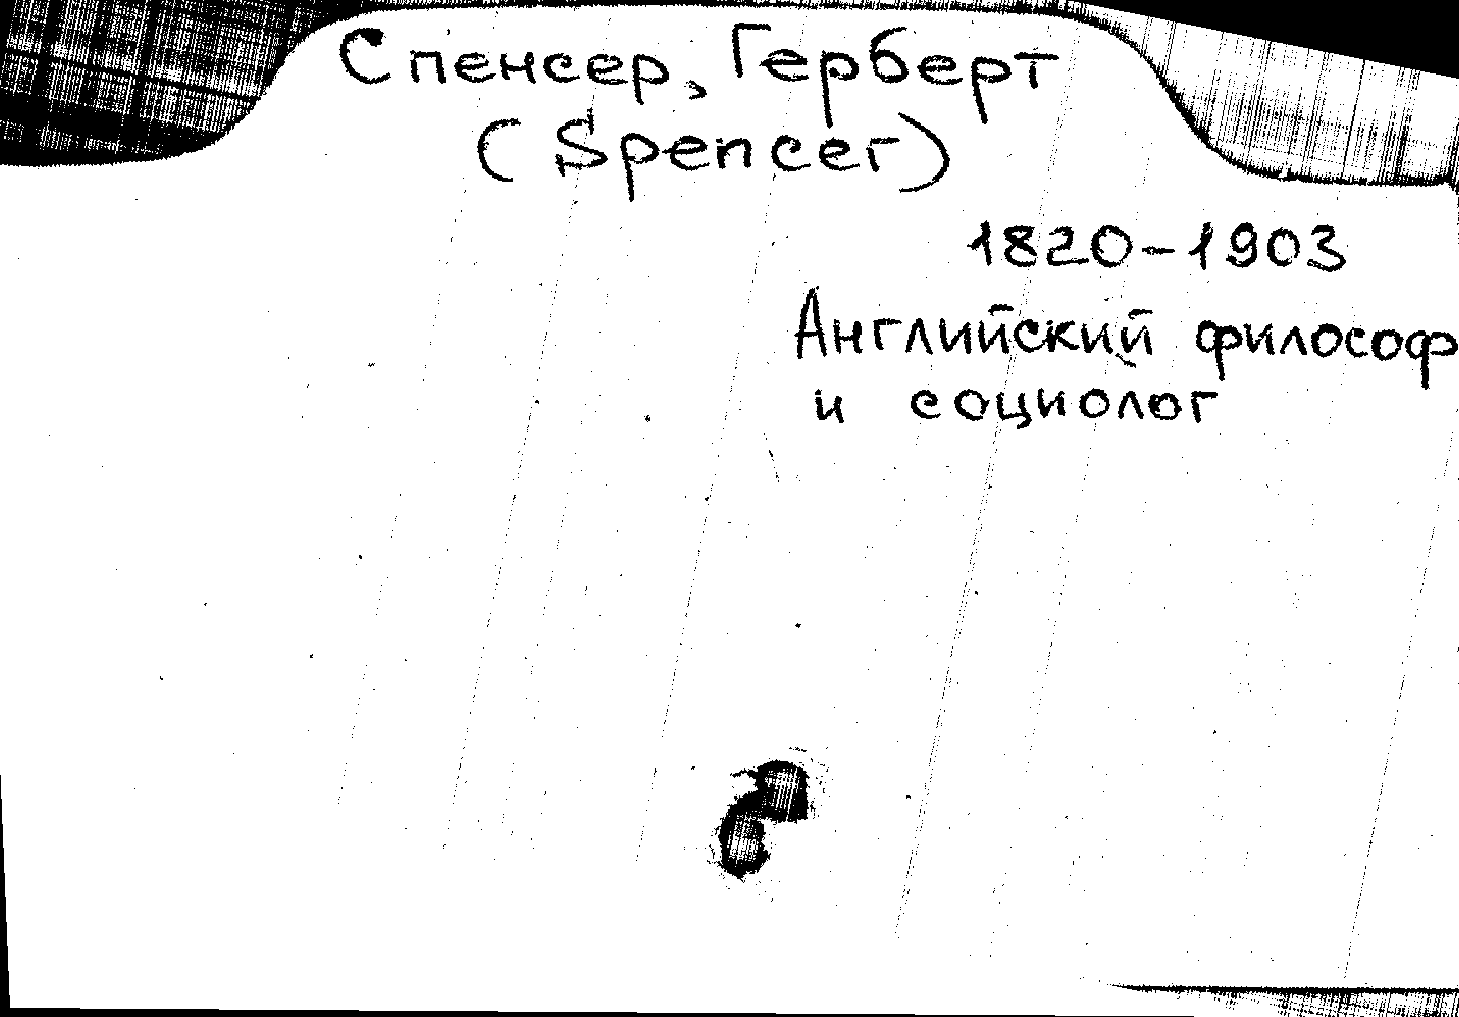 Спенсер, Герберт
(Spencer)
1820-1903
Английский философ
и социолог